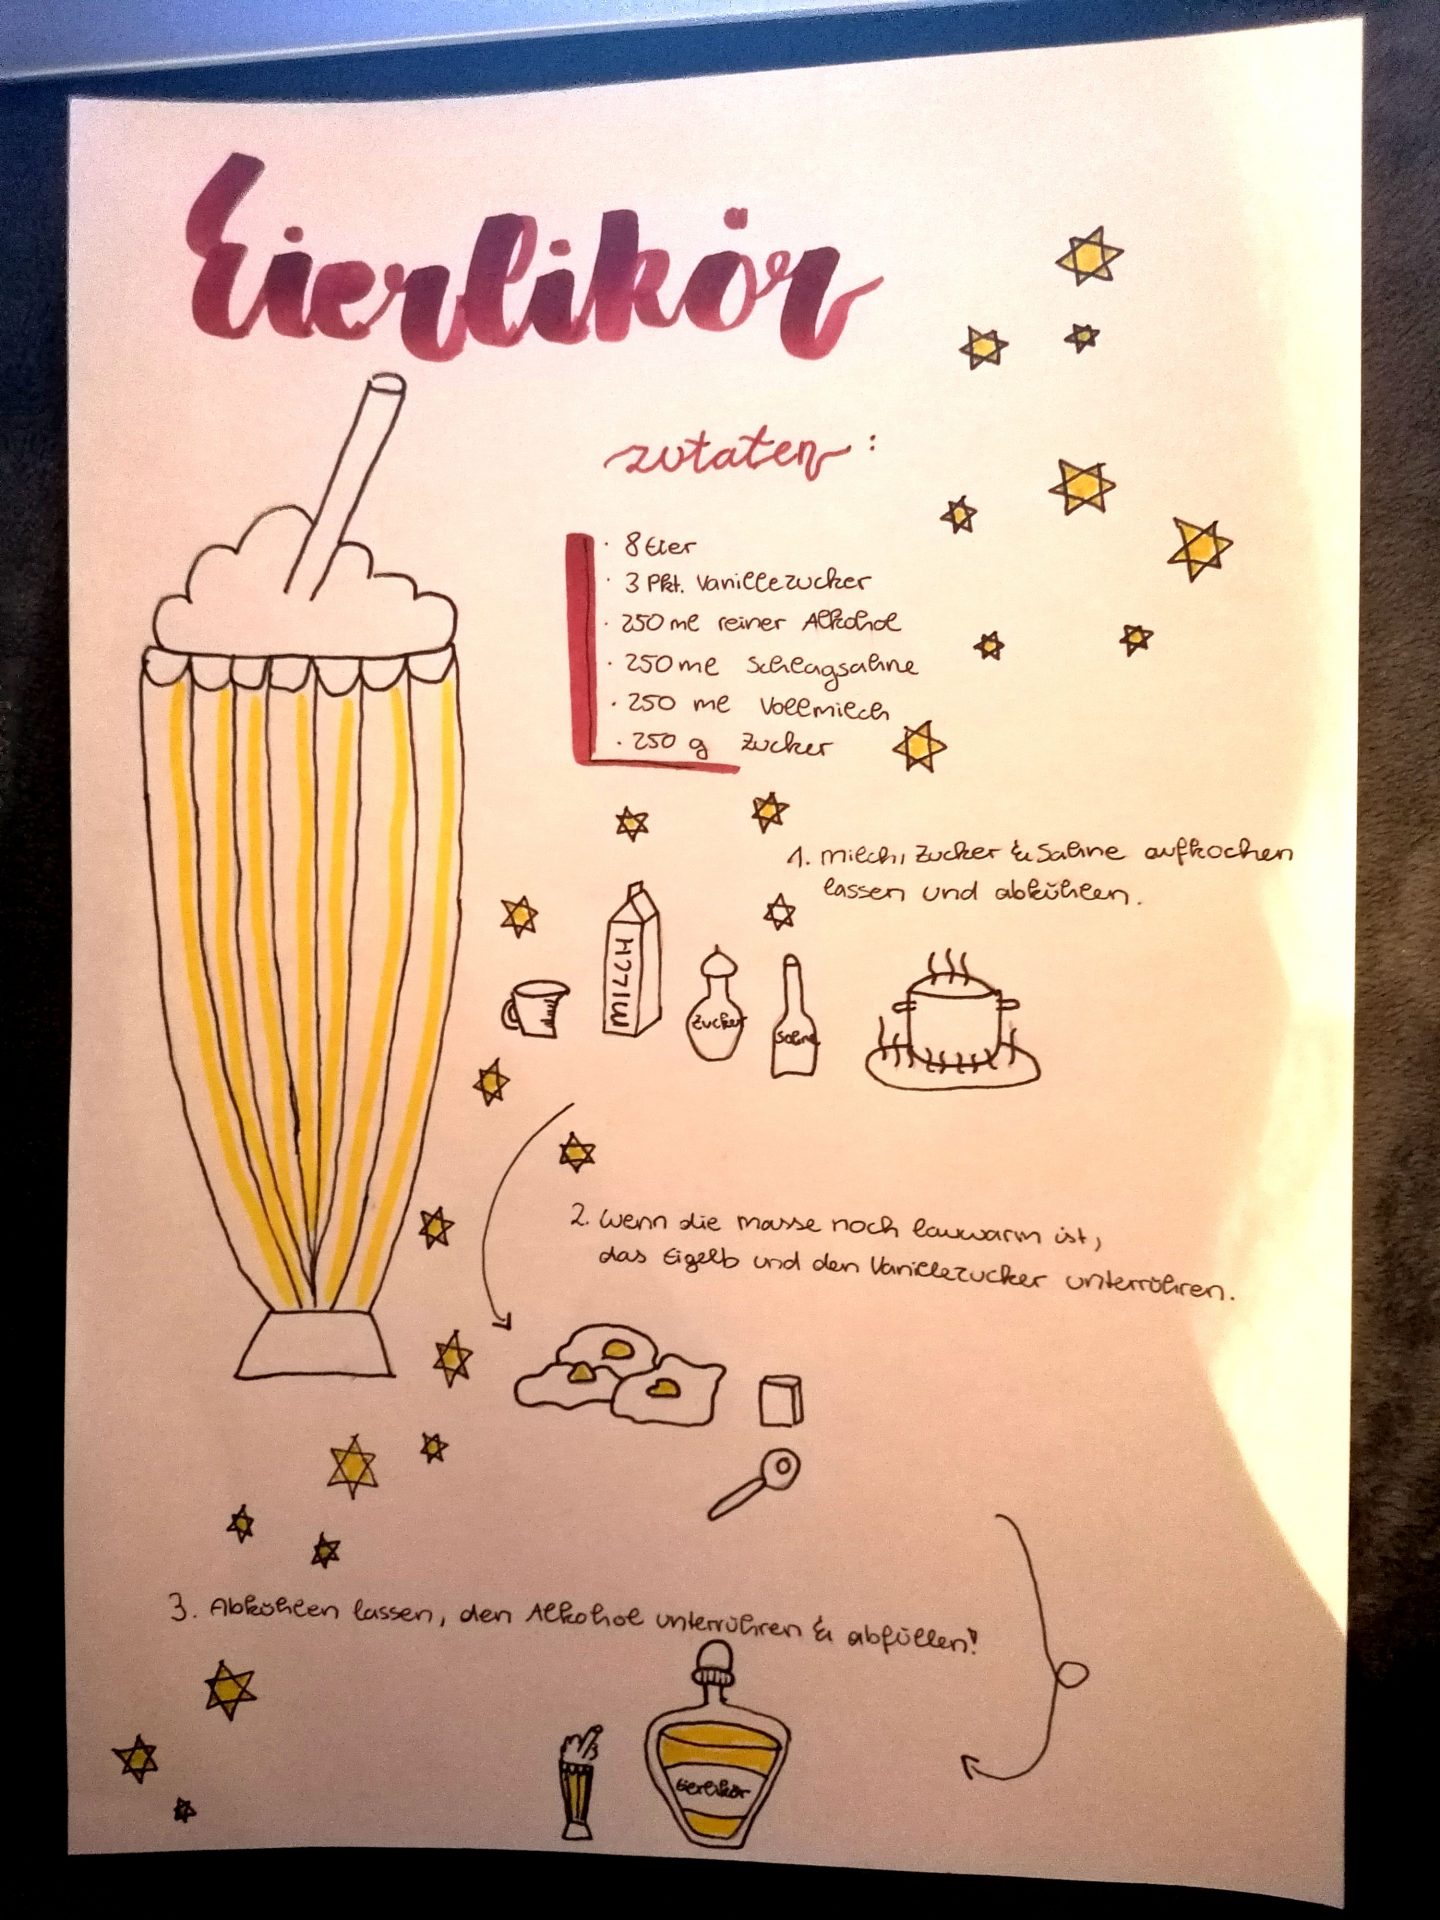 Eierlikör
zutaten:
· 8 Eier
· 3 Pkt. Vanillezucker
· 250 ml reiner Alkohol
· 250 ml Schlagsahne
· 250 ml Vollmilch
· 250 g Zucker
1. Milch, Zucker & Sahne aufkochen
lassen und abkühlen.
MILCH
Zucker
Sahne
2. Wenn die Masse noch lauwarm ist,
das Eigelb und den Vanillezucker unterrühren.
3. Abkühlen lassen, den Alkohol unterrühren & abfüllen!
Eierlikör